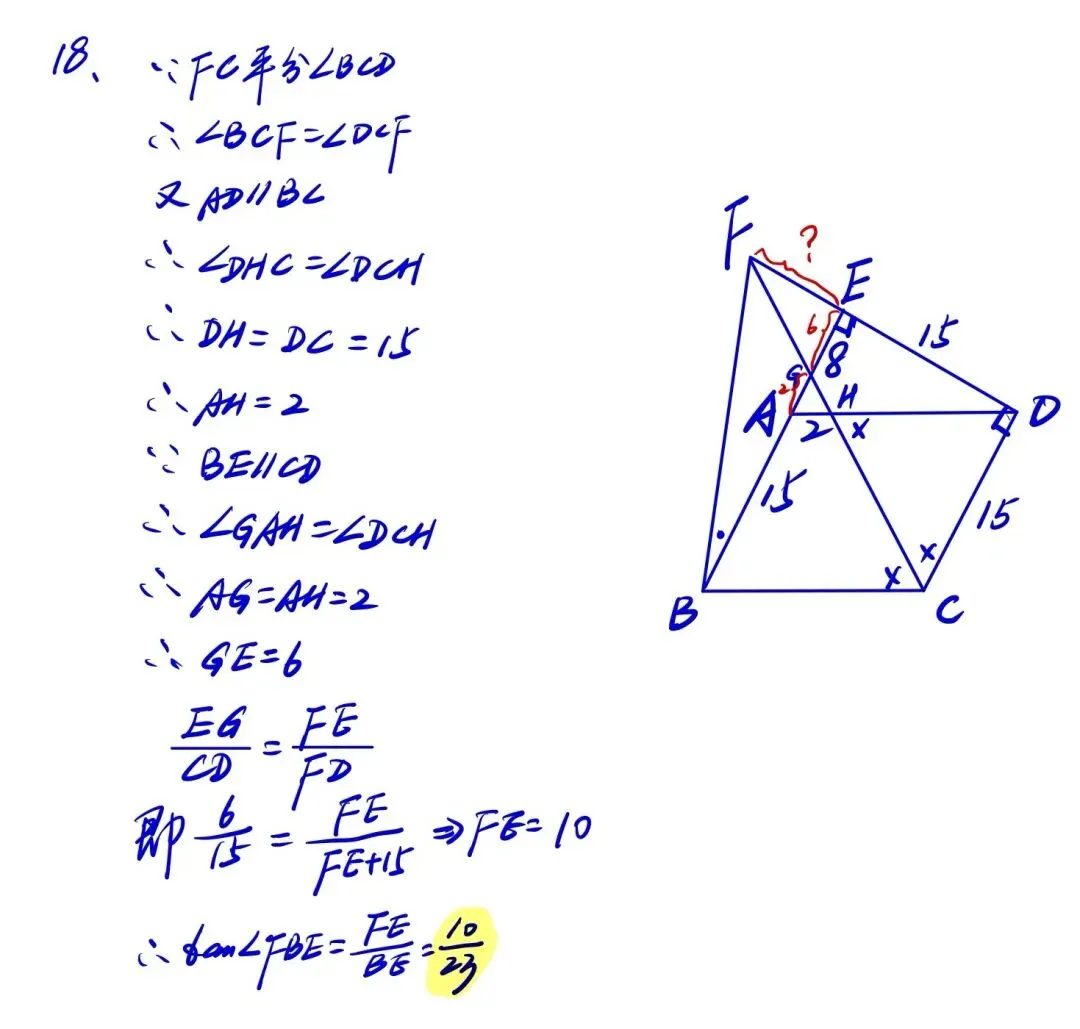 18、 ∵FC平分∠BCD
∴∠BCF=∠DCF
又AD∥BC
∴∠DHC=∠DCH
∴DH=DC=15
∴AH=2
∵BE∥CD
∴∠GAH=∠DCH
∴AG=AH=2
∴GE=6
EG/CD=FE/FD
即 6/15=FE/FE+15 ⇒FE=10
∴tan∠FBE=FE/BE=10/23
F
?
E
6
15
G
8
2
H
A
2
x
D
15
15
x
x
B
C